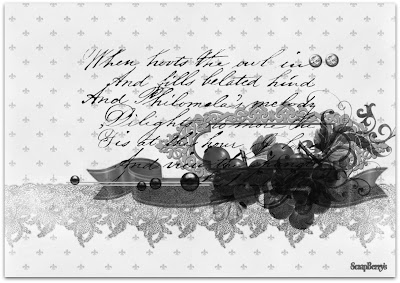 When hoots the owl in
And fills belated hind
And Philomela's melody
Delights no more the
'Tis at this hour
And
ScrapBerry's